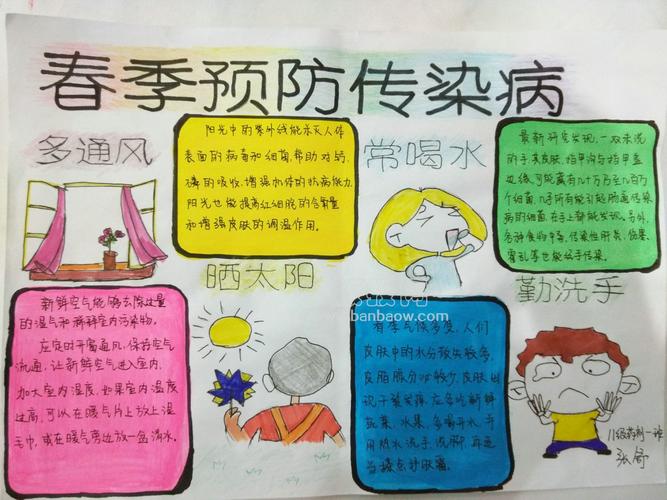 春季预防传染病
多通风
阳光中的紫外线能杀灭人体
表面的病毒和细菌,帮助对钙、
磷的吸收,增强机体的抗病能力,
阳光也能提高红细胞的含氧量
和增强皮肤的调温作用。
常喝水
最新研究发现,一双未洗
的手表皮肤,指甲沟与指甲盖
边缘,可能藏有几十万乃至几百万
个细菌,几乎所有能引起肠道传染
病的细菌,在手上都能发现。另外,
各种食物中毒,传染性肝炎,伤寒,
霍乱等也能经手传染。
晒太阳
banbaow.com
勤洗手
新鲜空气能够去除过量
的湿气和稀释室内污染物。
应定时开窗通风,保持空气
流通,让新鲜空气进入室内,
加大室内湿度,如果室内温度
过高,可以在暖气片上放上湿
毛巾,或在暖气旁边放一盆清水。
春季气候多变,人们
皮肤中的水分散失较多,
皮脂腺分泌较少,皮肤出
现干裂
蔬菜、水果,多喝开水,并
用热水洗手、洗脚
张舒